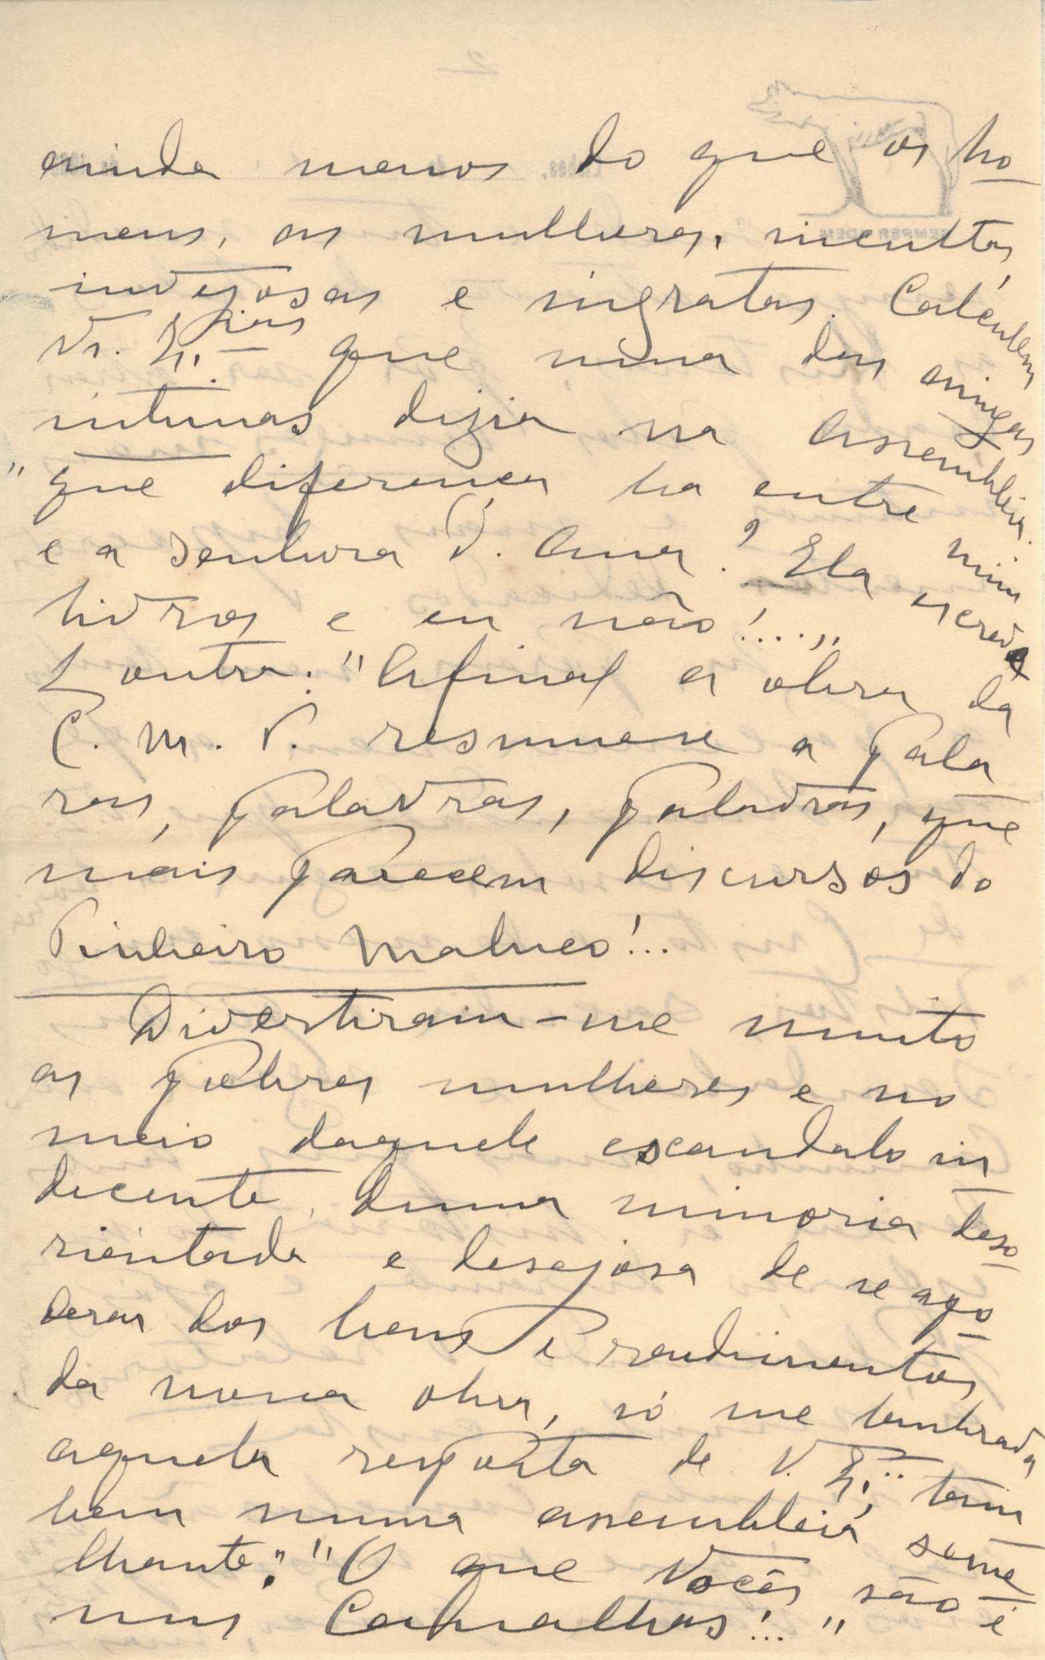 ainda menos do que os ho-
mens, as mulheres, incultas,
invejosas e ingratas. Calculem
V. Ex.ias que uma das amigas
intimas dizia na Assembleia:
"que diferença ha entre mim
e a senhora D. Ana? Ela escreve
livros e eu não!..."
E outra: "Afinal a obra da
C. M. P. resume-se a pala
ras, palavras, palavras, que
mais parecem discursos do
Pinheiro Maluco!..
Divertiram-me muito
as pobres mulheres e no
meio daquele escandalo in
decente, duma minoria deso-
rientada e desejosa de se apo-
derar dos bens e rendimentos
da nossa obra, só me lembrava
aquela resposta de V. Ex.ª tam
bem numa assembleia seme-
lhante: "O que Vocês são é
uns Canalhas!..."